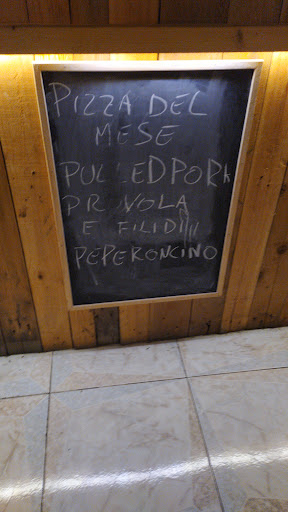 PIZZA DEL
MESE
PULLEDPORK
PROVOLA
E FILIDI
PEPERONCINO